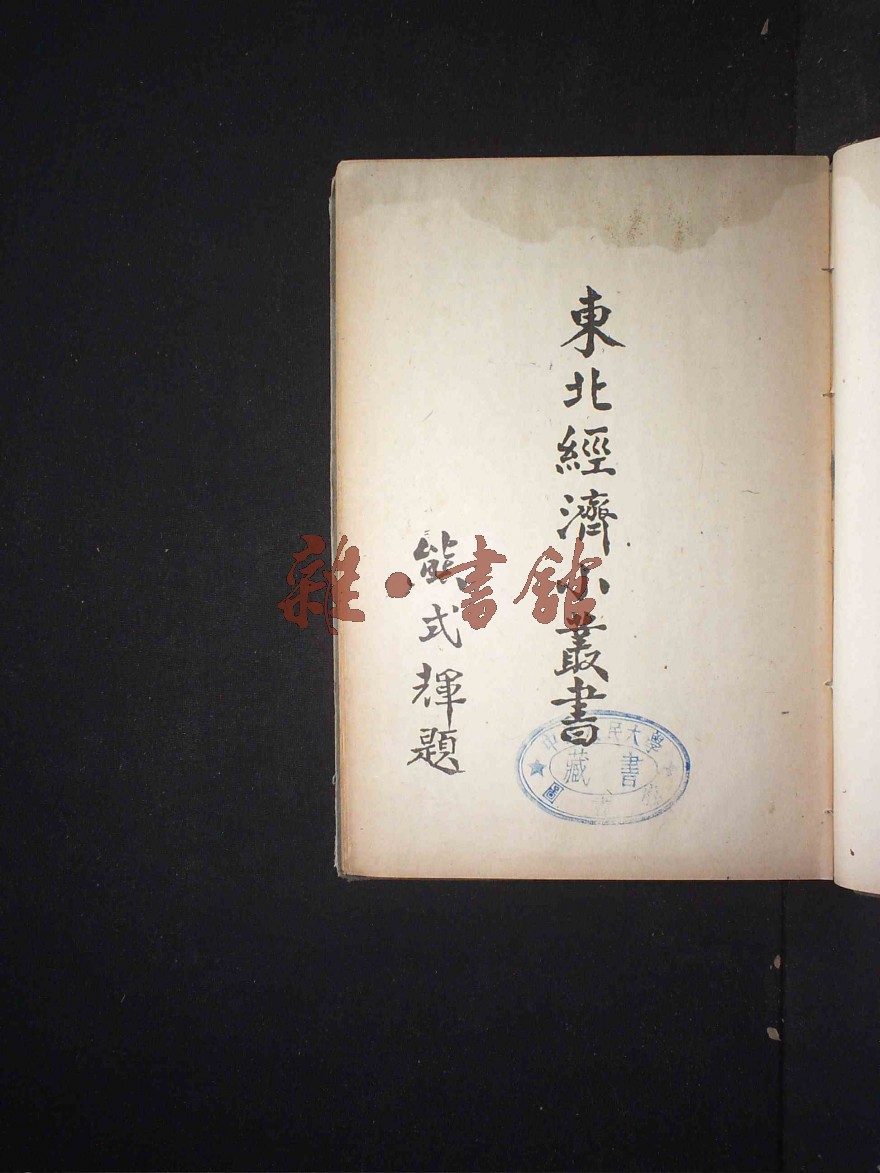 東北經濟小叢書
熊式輝題
雜·書館
中 民大學
藏書
圖